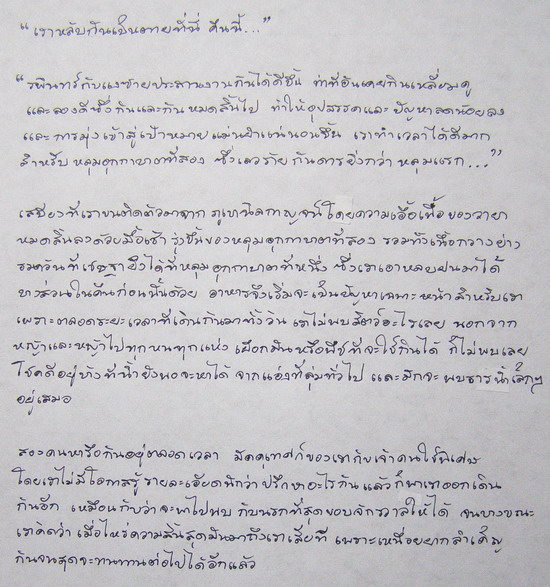 “เราหลับกันเป็นตายที่นี่ คืนนี้...”
“รพินทร์กับแงซายประสานงานกันได้ดีขึ้น ท่าทีอันเคยกินเหลี่ยมดู
และลองดีซึ่งกันและกันหมดสิ้นไป ทำให้อุปสรรคและปัญหาลดน้อยลง
และการมุ่งเข้าสู่เป้าหมายแม่นยำแน่นอนขึ้น เราทำเวลาได้ดีมาก
สำหรับ หลุมอุกกาบาตที่สอง ซึ่งเลวร้ายกันดารยิ่งกว่า หลุมแรก...”
เสบียงที่เราขนติดตัวมาจาก ภูเขานิลกาญจน์โดยความเอื้อเฟื้อของวายา
หมดสิ้นลงด้วยมื้อเช้า รุ่งขึ้นของหลุมอุกกาบาตที่สอง รวมทั้งเนื้อกวางย่าง
รมควันที่เชษฐายิงได้ที่หลุมอุกกาบาตที่หนึ่ง ซึ่งเราเอาหลบฝนมาได้
บางส่วนในคืนก่อนนั้นด้วย อาหารจึงเริ่มจะเป็นปัญหาเฉพาะหน้าสำหรับเรา
เพราะตลอดระยะเวลาที่เดินกันมาทั้งวัน เราไม่พบสัตว์อะไรเลย นอกจาก
หญ้าและหญ้าไปทุกหนทุกแห่ง เผือกมันหรือพืชที่จะใช้กินได้ ก็ไม่พบเลย
โชคดีอยู่บ้างที่น้ำยังพอจะหาได้ จากแอ่งที่ลุ่มทั่วไป และมักจะ พบธารน้ำเล็กๆ
อยู่เสมอ
สองคนหารือกันอยู่ตลอดเวลา มัคคุเทศก์ของเรากับเจ้าคนใช้พิเศษ
โดยเราไม่มีโอกาสรู้รายละเอียดนักว่าปรึกษาอะไรกัน แล้วก็พาเราออกเดิน
กันอีก เหมือนกับว่าจะพาไปพบ กับนรกที่สุดขอบจักรวาลให้ได้ จนบางขณะ
เราคิดว่า เมื่อไหร่ความสิ้นสุดมันมาถึงเราเสียที เพราะเหนื่อยยากลำเค็ญ
กันจนสุดจะทนทานต่อไปได้อีกแล้ว